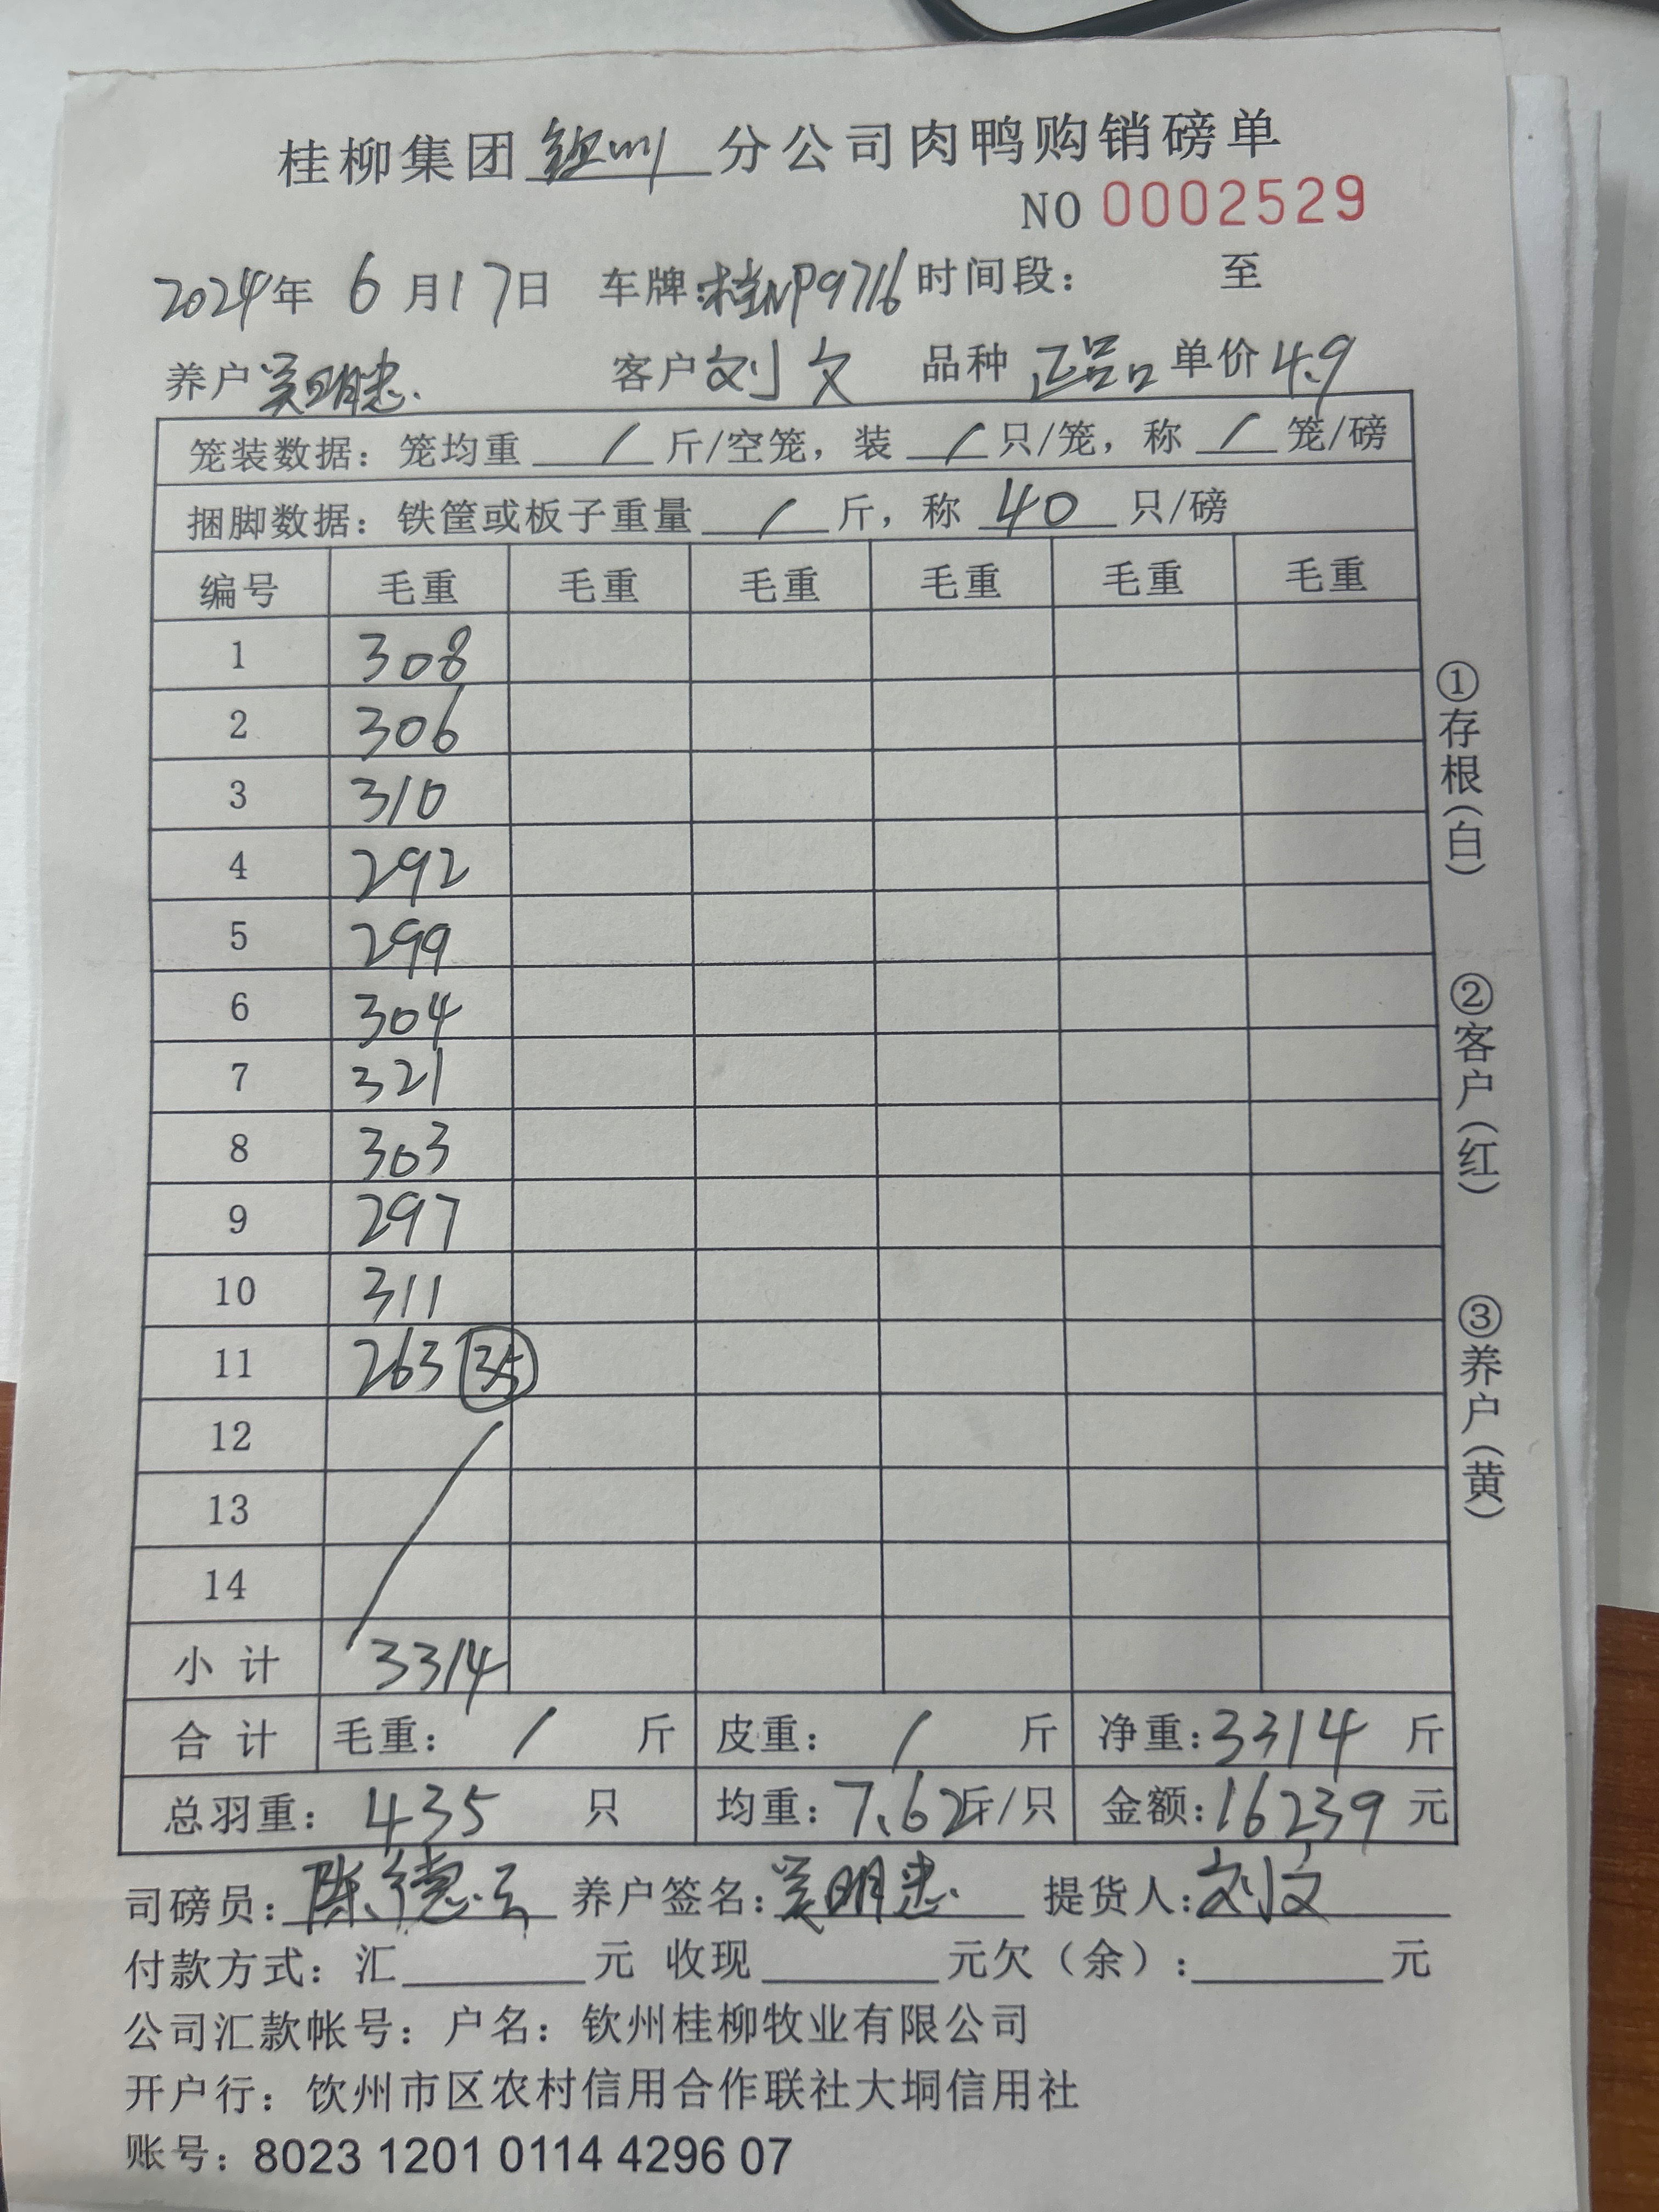 桂柳集团钦州分公司肉鸭购销磅单
NO 0002529
2024年 6月17日 车牌:桂NP9716 时间段: 至
养户 吴明忠. 客户 刘文 品种 正品 单价 4.9
笼装数据: 笼均重 / 斤/空笼, 装 / 只/笼, 称 / 笼/磅
捆脚数据: 铁筐或板子重量 / 斤, 称 40 只/磅
编号 毛重 毛重 毛重 毛重 毛重 毛重
1 308
2 306
3 310
4 292
5 299
6 304
7 321
8 303
9 297
10 311
11 263 35
12
13
14
小计 3314
合计 毛重: / 斤 皮重: / 斤 净重: 3314 斤
总羽重: 435 只 均重: 7.62斤/只 金额: 16239 元
司磅员: 陈德云 养户签名: 吴明忠. 提货人: 刘文
付款方式: 汇 元 收现 元欠(余): 元
公司汇款帐号: 户名: 钦州桂柳牧业有限公司
开户行: 钦州市区农村信用合作联社大垌信用社
账号: 8023 1201 0114 4296 07
①存根(白)
②客户(红)
③养户(黄)